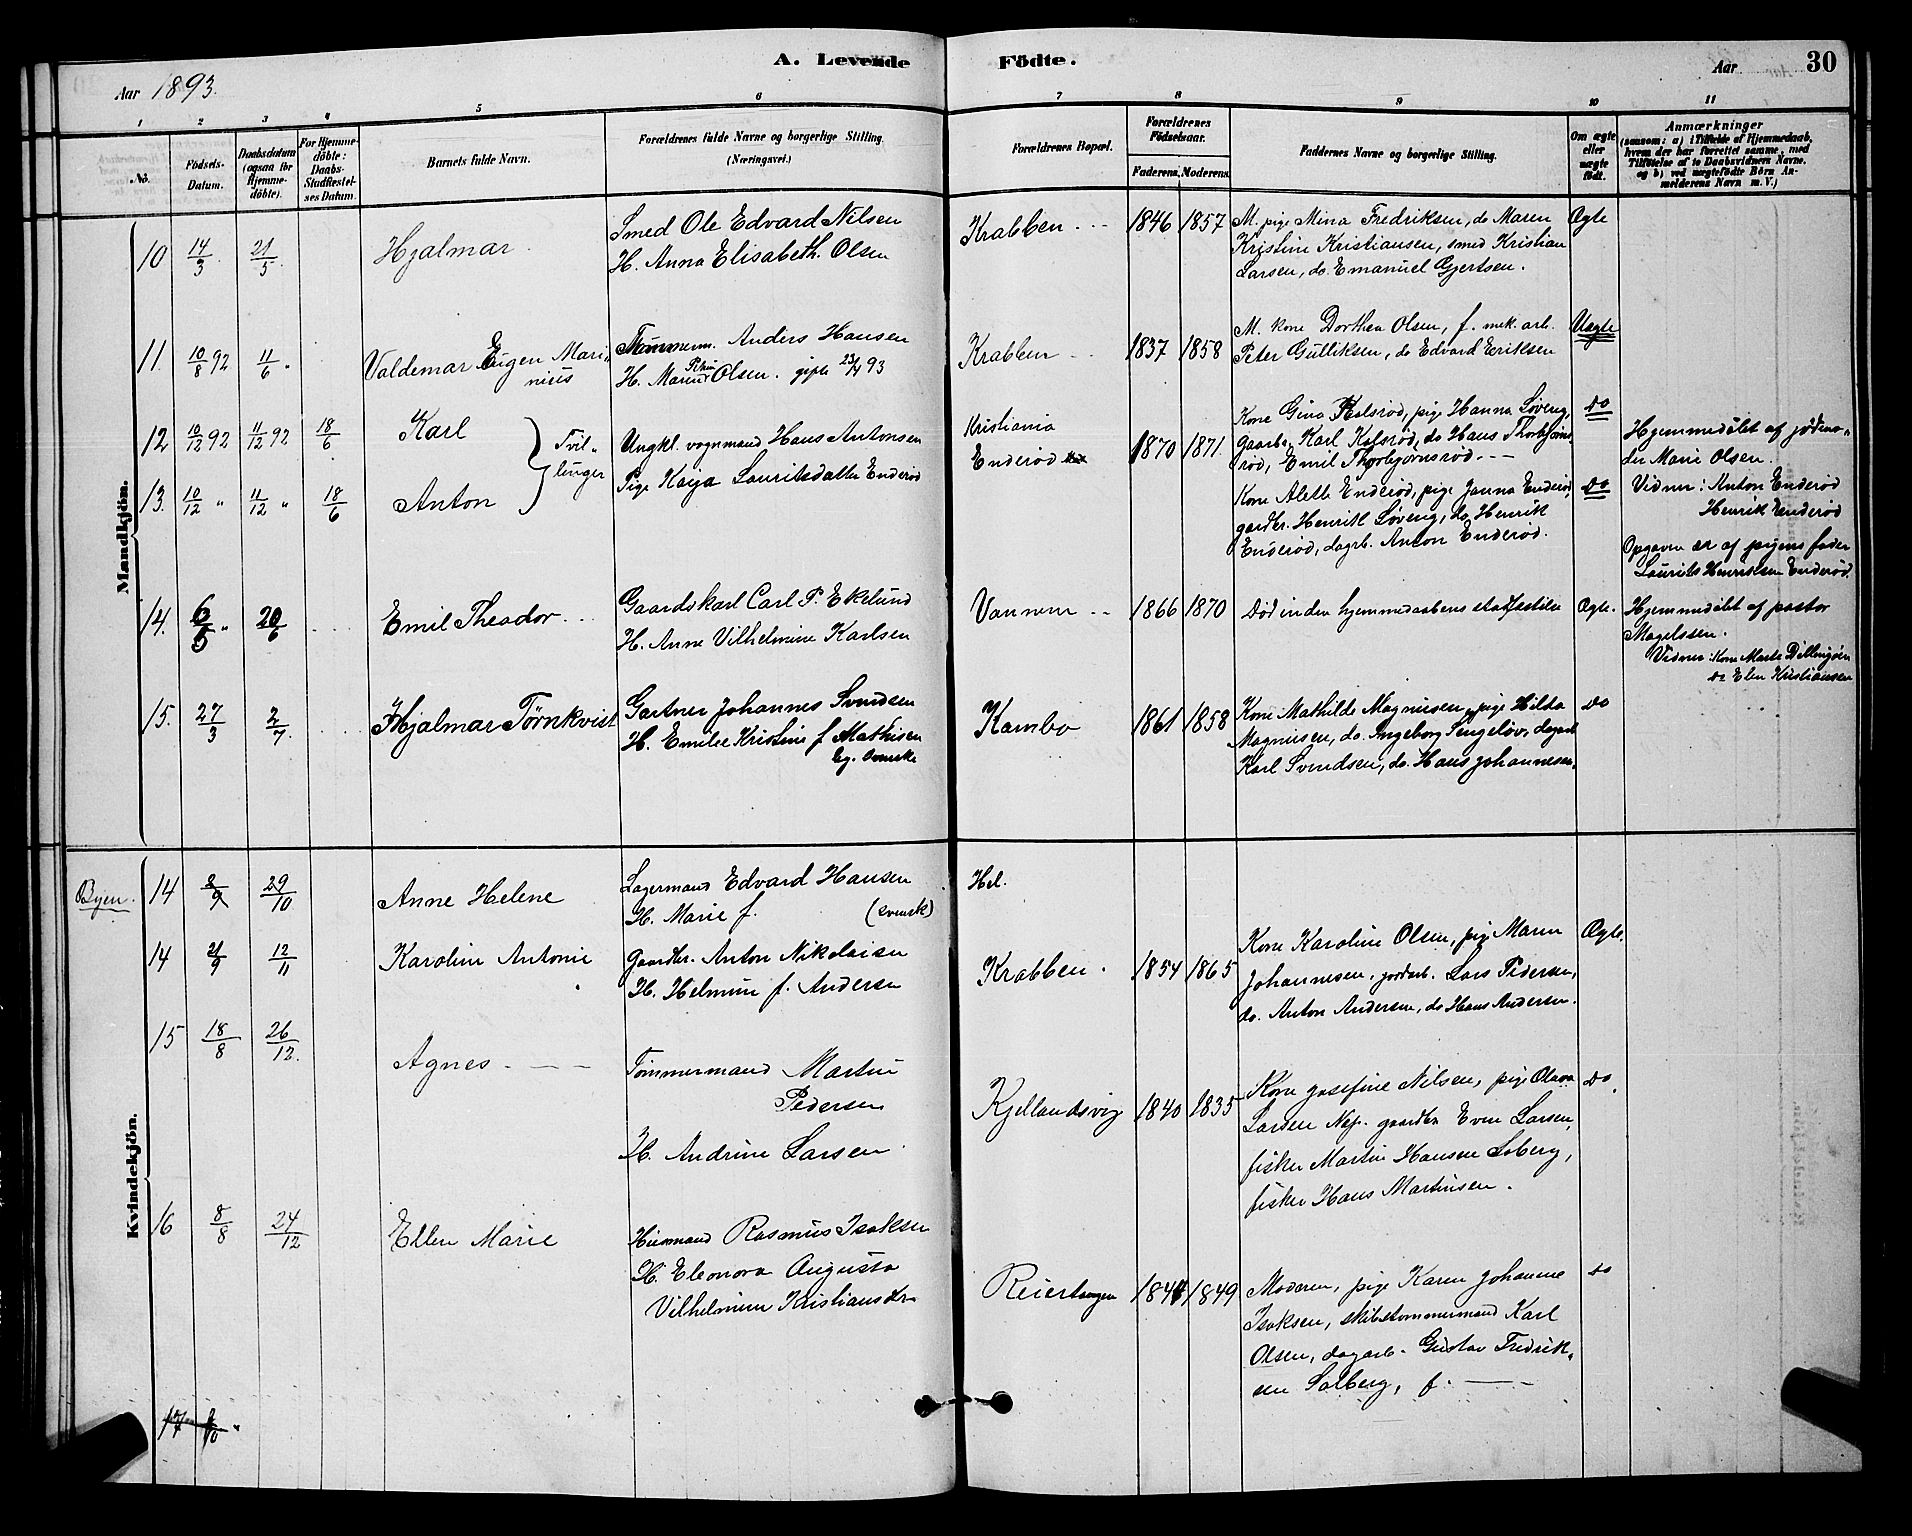 A. Levende Fødte.
Aar 1893.
Aar
30
1 2 3 4 5 6 7 8 9 10 11
No.
Fødsels-Datum.
Daabsdatum (ogsaa for Hjemme-døbte).
For Hjemme-døbte: Daabs-Stadfæstel-ses Datum.
Barnets fulde Navn.
Forældrenes fulde Navne og borgerlige Stilling. (Næringsvei.)
Forældrenes Bopæl.
Forældrenes Fødselsaar.
Faderens. Moderens.
Faddernes Navne og borgerlige Stilling.
Om ægte eller uægte født.
Anmærkninger
(saasom: a) i Tilfælde af Hjemmedaab, hvem der har forrettet samme, med Tilføielse af to Daabsvidners Navne, og b) ved uægtefødte Børn An-melderens Navn m. V.)
Mandkjön.
10 14/3 21/5. Hjalmar.
Smed Ole Edvard Nilsen
H. Anna Elisabeth Olsen
Krabben 1846 1857
M. pige Mina Fredriksen, do Maren
Kristine Kristiansen, smed Kristian
Larsen, do. Emanuel Gjertsen.
Ægte
11. 10/8 92 11/6 "
Valdemar Eugen Mari-
nius
Tømmerm. Anders Hansen
H. Maren Olsen. gift 23/4 93
Krabben 1837 1858
M. kone Dorthea Olsen, f. mek. arb.
Peter Gulliksen, do Edvard Eriksen
Uægte
12 10/12 92 11/12 92 18/6 Karl
Tvil-
linger
Ungkl. vognmand Hans Antonsen
Pige Kaija Lauritsdatter Enderød
Kristiania
Enderød
1870 1871.
Kone Gina Kolsrød, pige Hanna Løveng,
gaardbr. Karl Kolsrød, do Hans Thorbjørns-
rød, Emil Thorbjørnsrød
do
Hjemmedøbt af jødmo-
der Marie Olsen.
13. 10/12 " 11/12 " 18/6 Anton
Kone Alette Enderød, pige Janna Enderød
gardbr. Henrik Løveng, do Henrik
Enderød, dagarb. Anton Enderød.
do
Vidner: Anton Enderød
Henrik Enderød
Opgaven er af pigens fader
Laurits Henriksen Enderød.
14. 6/5 " 20/6 Emil Theodor
Gaardskarl Carl P. Ekelund
H. Anne Vilhelmine Karlsen
Vannem 1866 1870
Død inden hjemmedaabens stadfæstelse
Ægte.
Hjemmedøbt af pastor
Magelssen.
Vidner: Kone Marte Dillingøen
do Elen Kristiansen
15. 27/3 2/7. Hjalmar Törnkvist
Gartner Johannes Svendsen
H. Emilie Kristine f Mathisen
beg. svenske
Kambo 1861 1858
Kone Mathilde Magnusen, pige Hilda
Magnusen, do. Ingeborg Tingelöv, dagarb
Karl Svendsen, do. Hans Johannesen.
do
Kvindekjön.
Byen. 14 2/9 29/10 Anne Helene
Lagermand Edvard Hansen
H. Marie f. (svensk)
Hel.
14 21/9 12/11 Karoline Antonie
Gaardbr. Anton Nikolaisen
H. Helmine f. Andersen
Krabben. 1854 1865
Kone Karoline Olsen, pige Maren
Johannesen, jordarb. Lars Pedersen,
do. Anton Andersen, do Hans Andersen.
Ægte.
15 18/8 26/12. Agnes
Tømmermand Martin
Pedersen
H. Andrine Larsen
Kjellandsvig 1840 1835
Kone Josefine Nilsen, pige Olava
Larsen Nes. gaardbr Even Larsen,
fisker Martin Hansen Soberg,
fisker Hans Martinsen.
do.
16 8/8 24/12 Ellen Marie
Huusmand Rasmus Isaksen
H. Eleonora Augusta
Vilhelmine Kristiansdtr
Reiertangen 1844 1849
Moderen, pige Karen Johanne
Isaksen, skibstømmermand Karl
Olsen, dagarb. Gustav Fredrik-
sen Solberg, f.
do
17